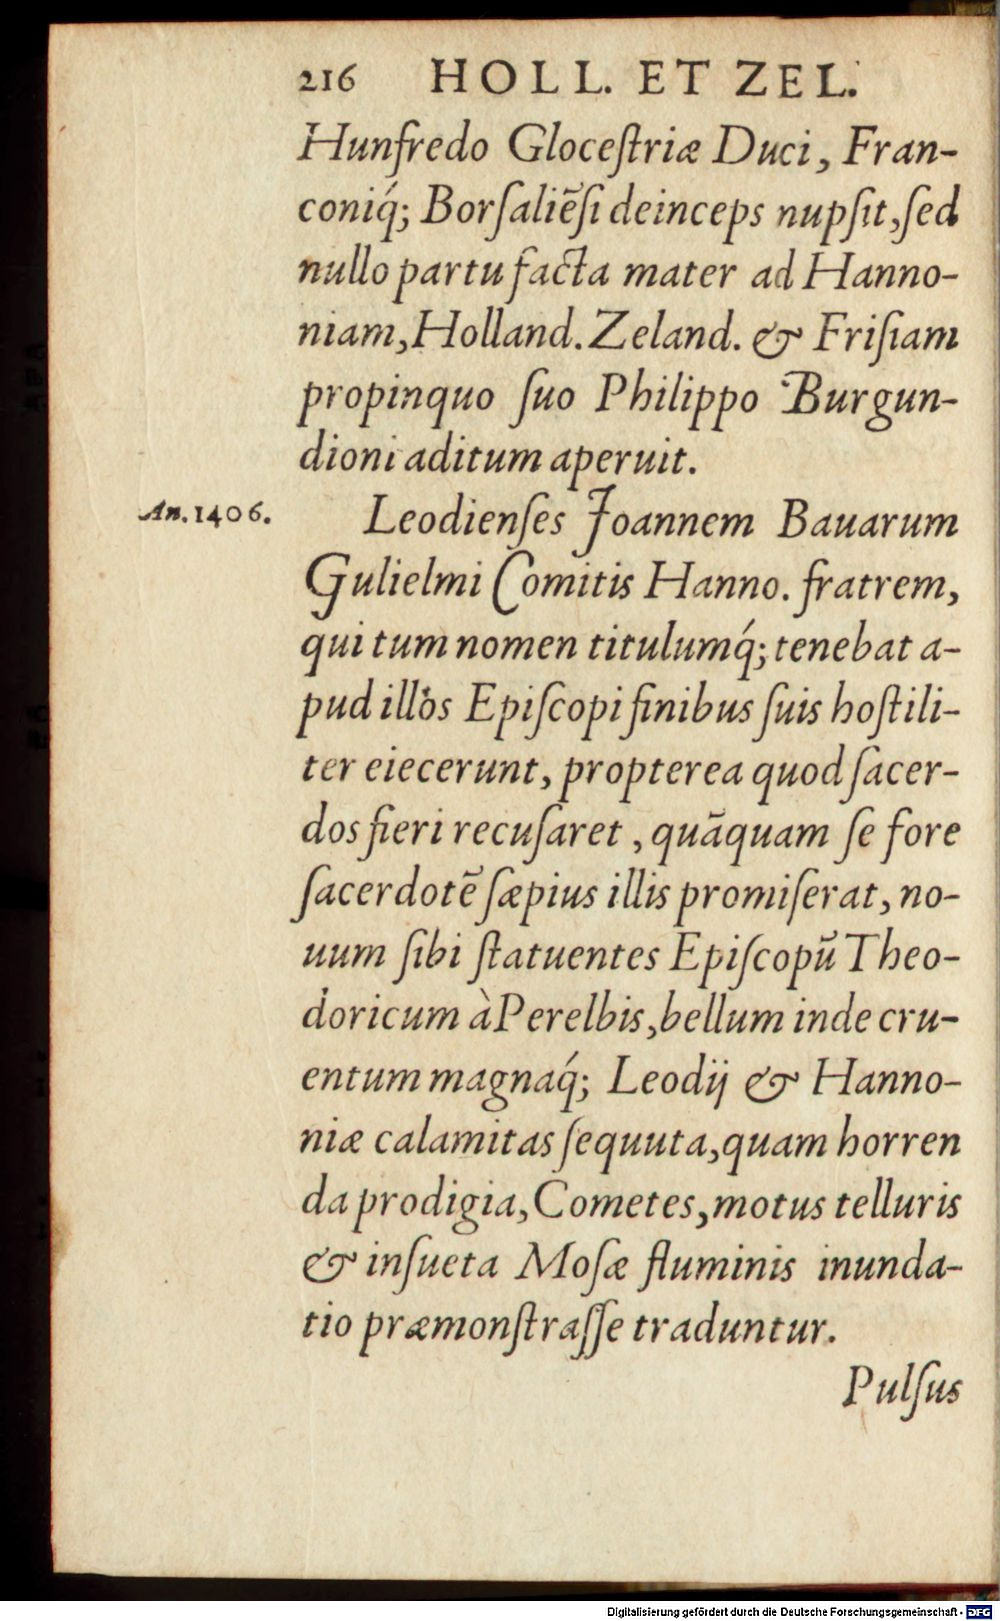 216 HOLL. ET ZEL.
Hunfredo Gloceſtriæ Duci, Fran-
coniq́; Borſaliẽſi deinceps nupſit, ſed
nullo partu facta mater ad Hanno-
niam, Holland. Zeland. & Friſiam
propinquo ſuo Philippo Burgun-
dioni aditum aperuit.
An. 1406. Leodienſes Joannem Bauarum
Gulielmi Comitis Hanno. fratrem,
qui tum nomen titulumq́; tenebat a-
pud illos Epiſcopi finibus ſuis hoſtili-
ter eiecerunt, propterea quod ſacer-
dos fieri recuſaret, quãquam ſe fore
ſacerdotẽ ſæpius illis promiſerat, no-
uum ſibi ſtatuentes Epiſcopũ Theo-
doricum à Perelbis, bellum inde cru-
entum magnaq́; Leodij & Hanno-
niæ calamitas ſequuta, quam horren
da prodigia, Cometes, motus telluris
& inſueta Moſæ fluminis inunda-
tio præmonſtraſſe traduntur.
Pulſus
Digitalisierung gefördert durch die Deutsche Forschungsgemeinschaft - DFG